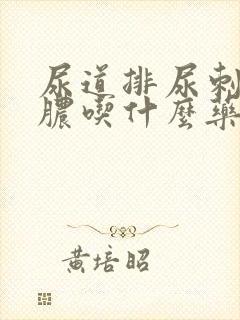 尿道排尿刺
膿喫什麼藥
黃培昭